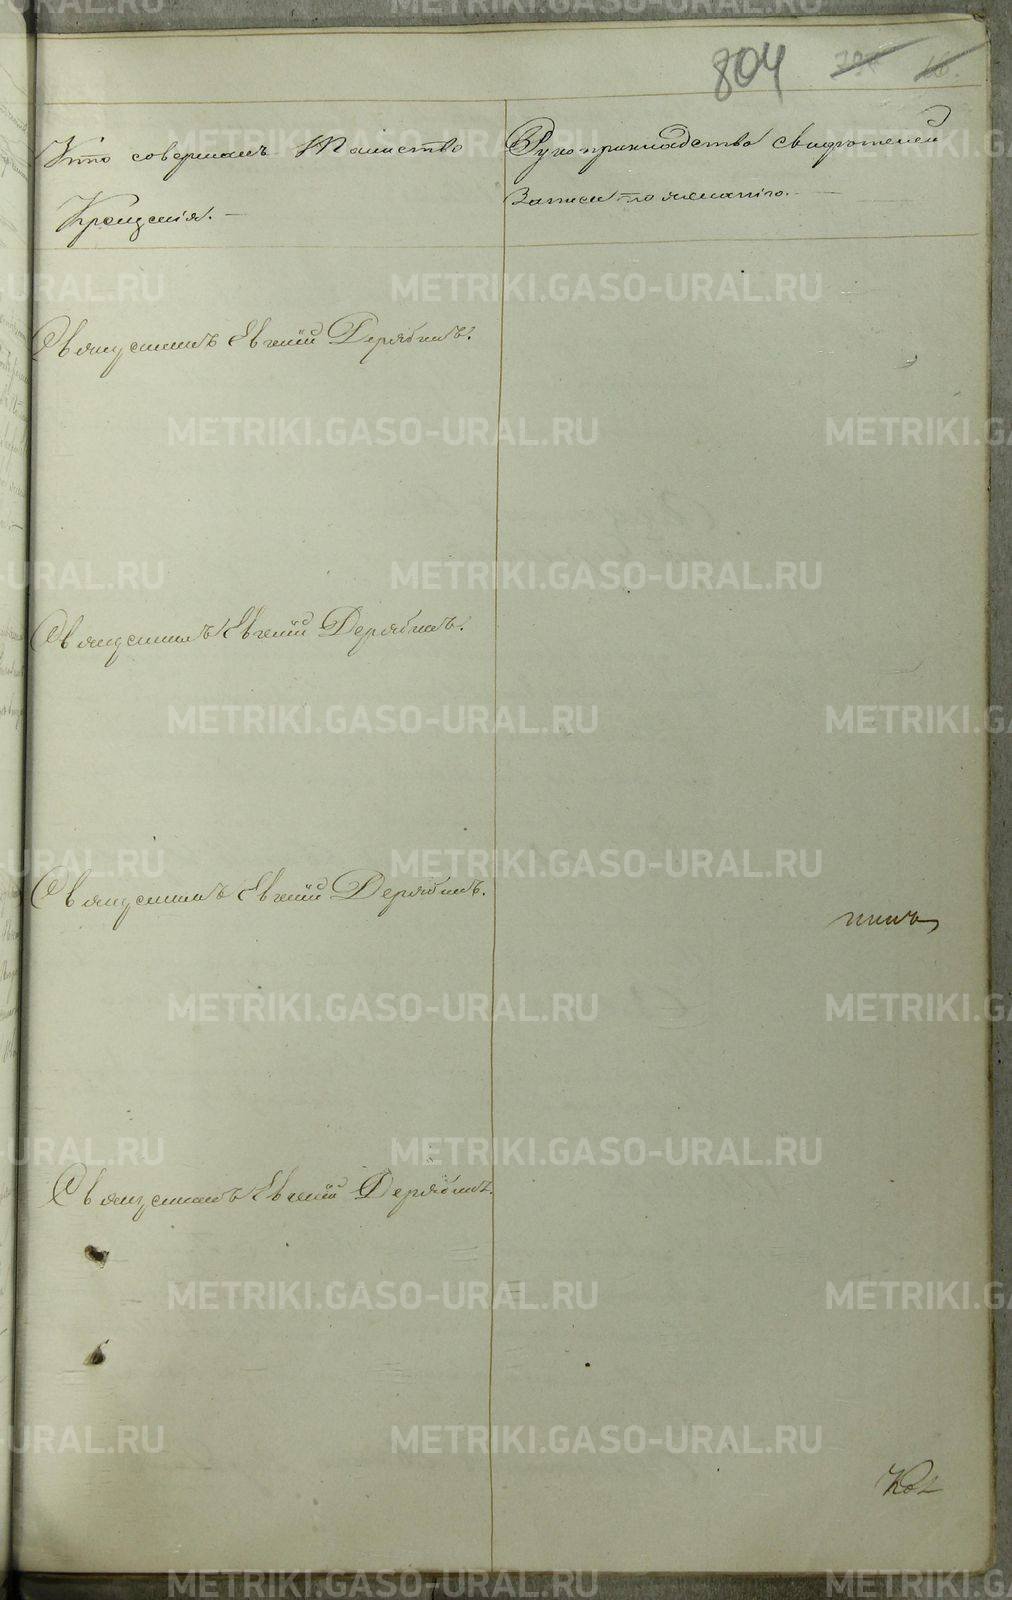 804
Кто совершалъ Таинство
Крещенія. —
Рукоприкладство свидѣтелей
Записи по желанію. —
Священникъ Евгеній Дерябинъ.
Священникъ Евгеній Дерябинъ.
Священникъ Евгеній Дерябинъ.
Священникъ Евгеній Дерябинъ.
METRIKI.GASO-URAL.RU